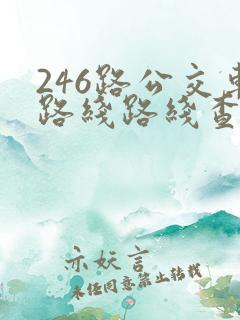 246路公交车
路线路线查
亦妖言
未经同意禁止转载